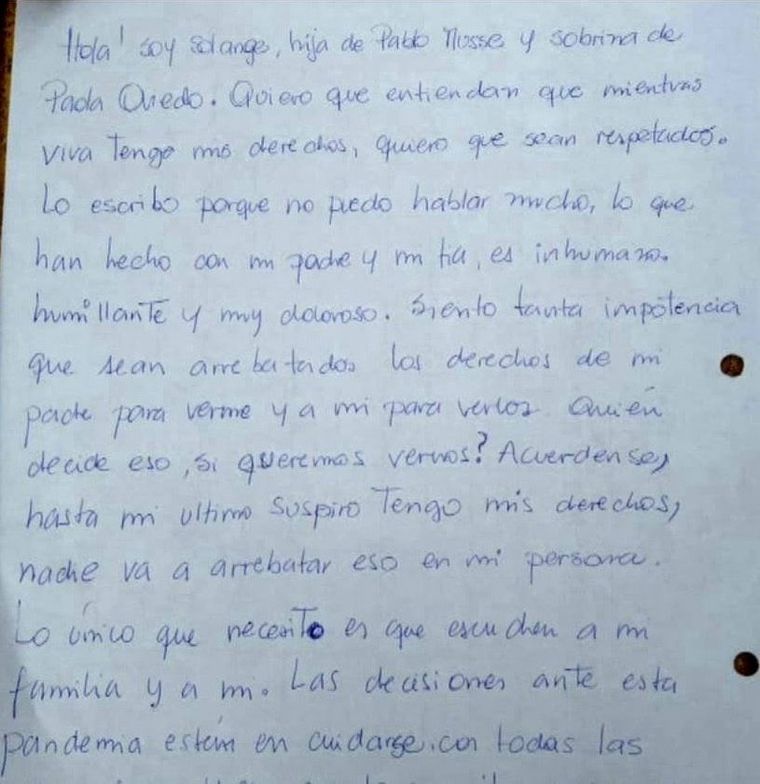 Hola! soy solange, hija de Pablo Musse y sobrina de
Paola Oviedo. Quiero que entiendan que mientras
viva Tengo mis derechos, quiero que sean respetados.
Lo escribo porque no puedo hablar mucho, lo que
han hecho con mi padre y mi tia, es inhumano.
humillanTe y muy doloroso. Siento tanta impotencia
que sean arrebatados los derechos de mi
padre para verme y a mi para verlos. Quién
decide eso, si queremos vernos? Acuerdense,
hasta mi ultimo suspiro Tengo mis derechos,
nadie va a arrebatar eso en mi persona.
Lo único que necesiTo es que escuchen a mi
familia y a mi. Las decisiones anTe esta
pandemia están en cuidarse con todas las